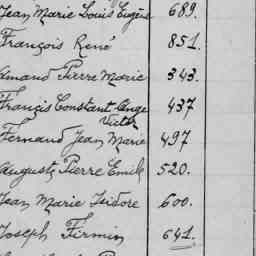 Jean Marie Louis Eugène 689.
François René 851.
Amand Pierre Marie 343.
Francis Constant Ange 437
Victor
Fernand Jean Marie 497
Auguste Pierre Emile 520.
Jean Marie Isidore 600.
Joseph Firmin 641.